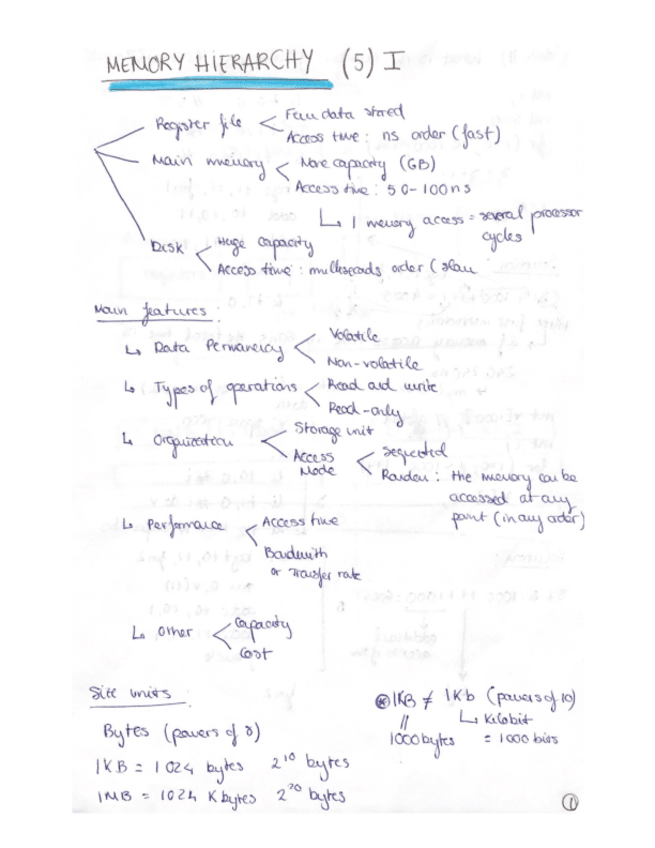 MEMORY HIERARCHY (5) I
Register file
Few data stored
Access time: ns order (fast)
Main memory
More capacity (GB)
Access time: 50-100ns
↳ 1 memory access = several processor
cycles
Disk
Huge capacity
Access time: milliseconds order (slow
Main features:
↳ Data Permanency
Volatile
Non-volatile
↳ Types of operations
Read and write
Read-only
↳ Organization
Storage unit
Access
Mode
sequential
Random: the memory can be
accessed at any
point (in any order)
↳ Performance
Access time
Bandwith
or Transfer rate
↳ Other
Capacity
Cost
Size units:
Bytes (powers of 2)
1KB = 1024 bytes 2^10 bytes
1MB = 1024 Kbytes 2^20 bytes
⊛ 1KB ≠ 1Kb (powers of 10)
|| ↳ Kilobit
1000 bytes = 1000 bits
1